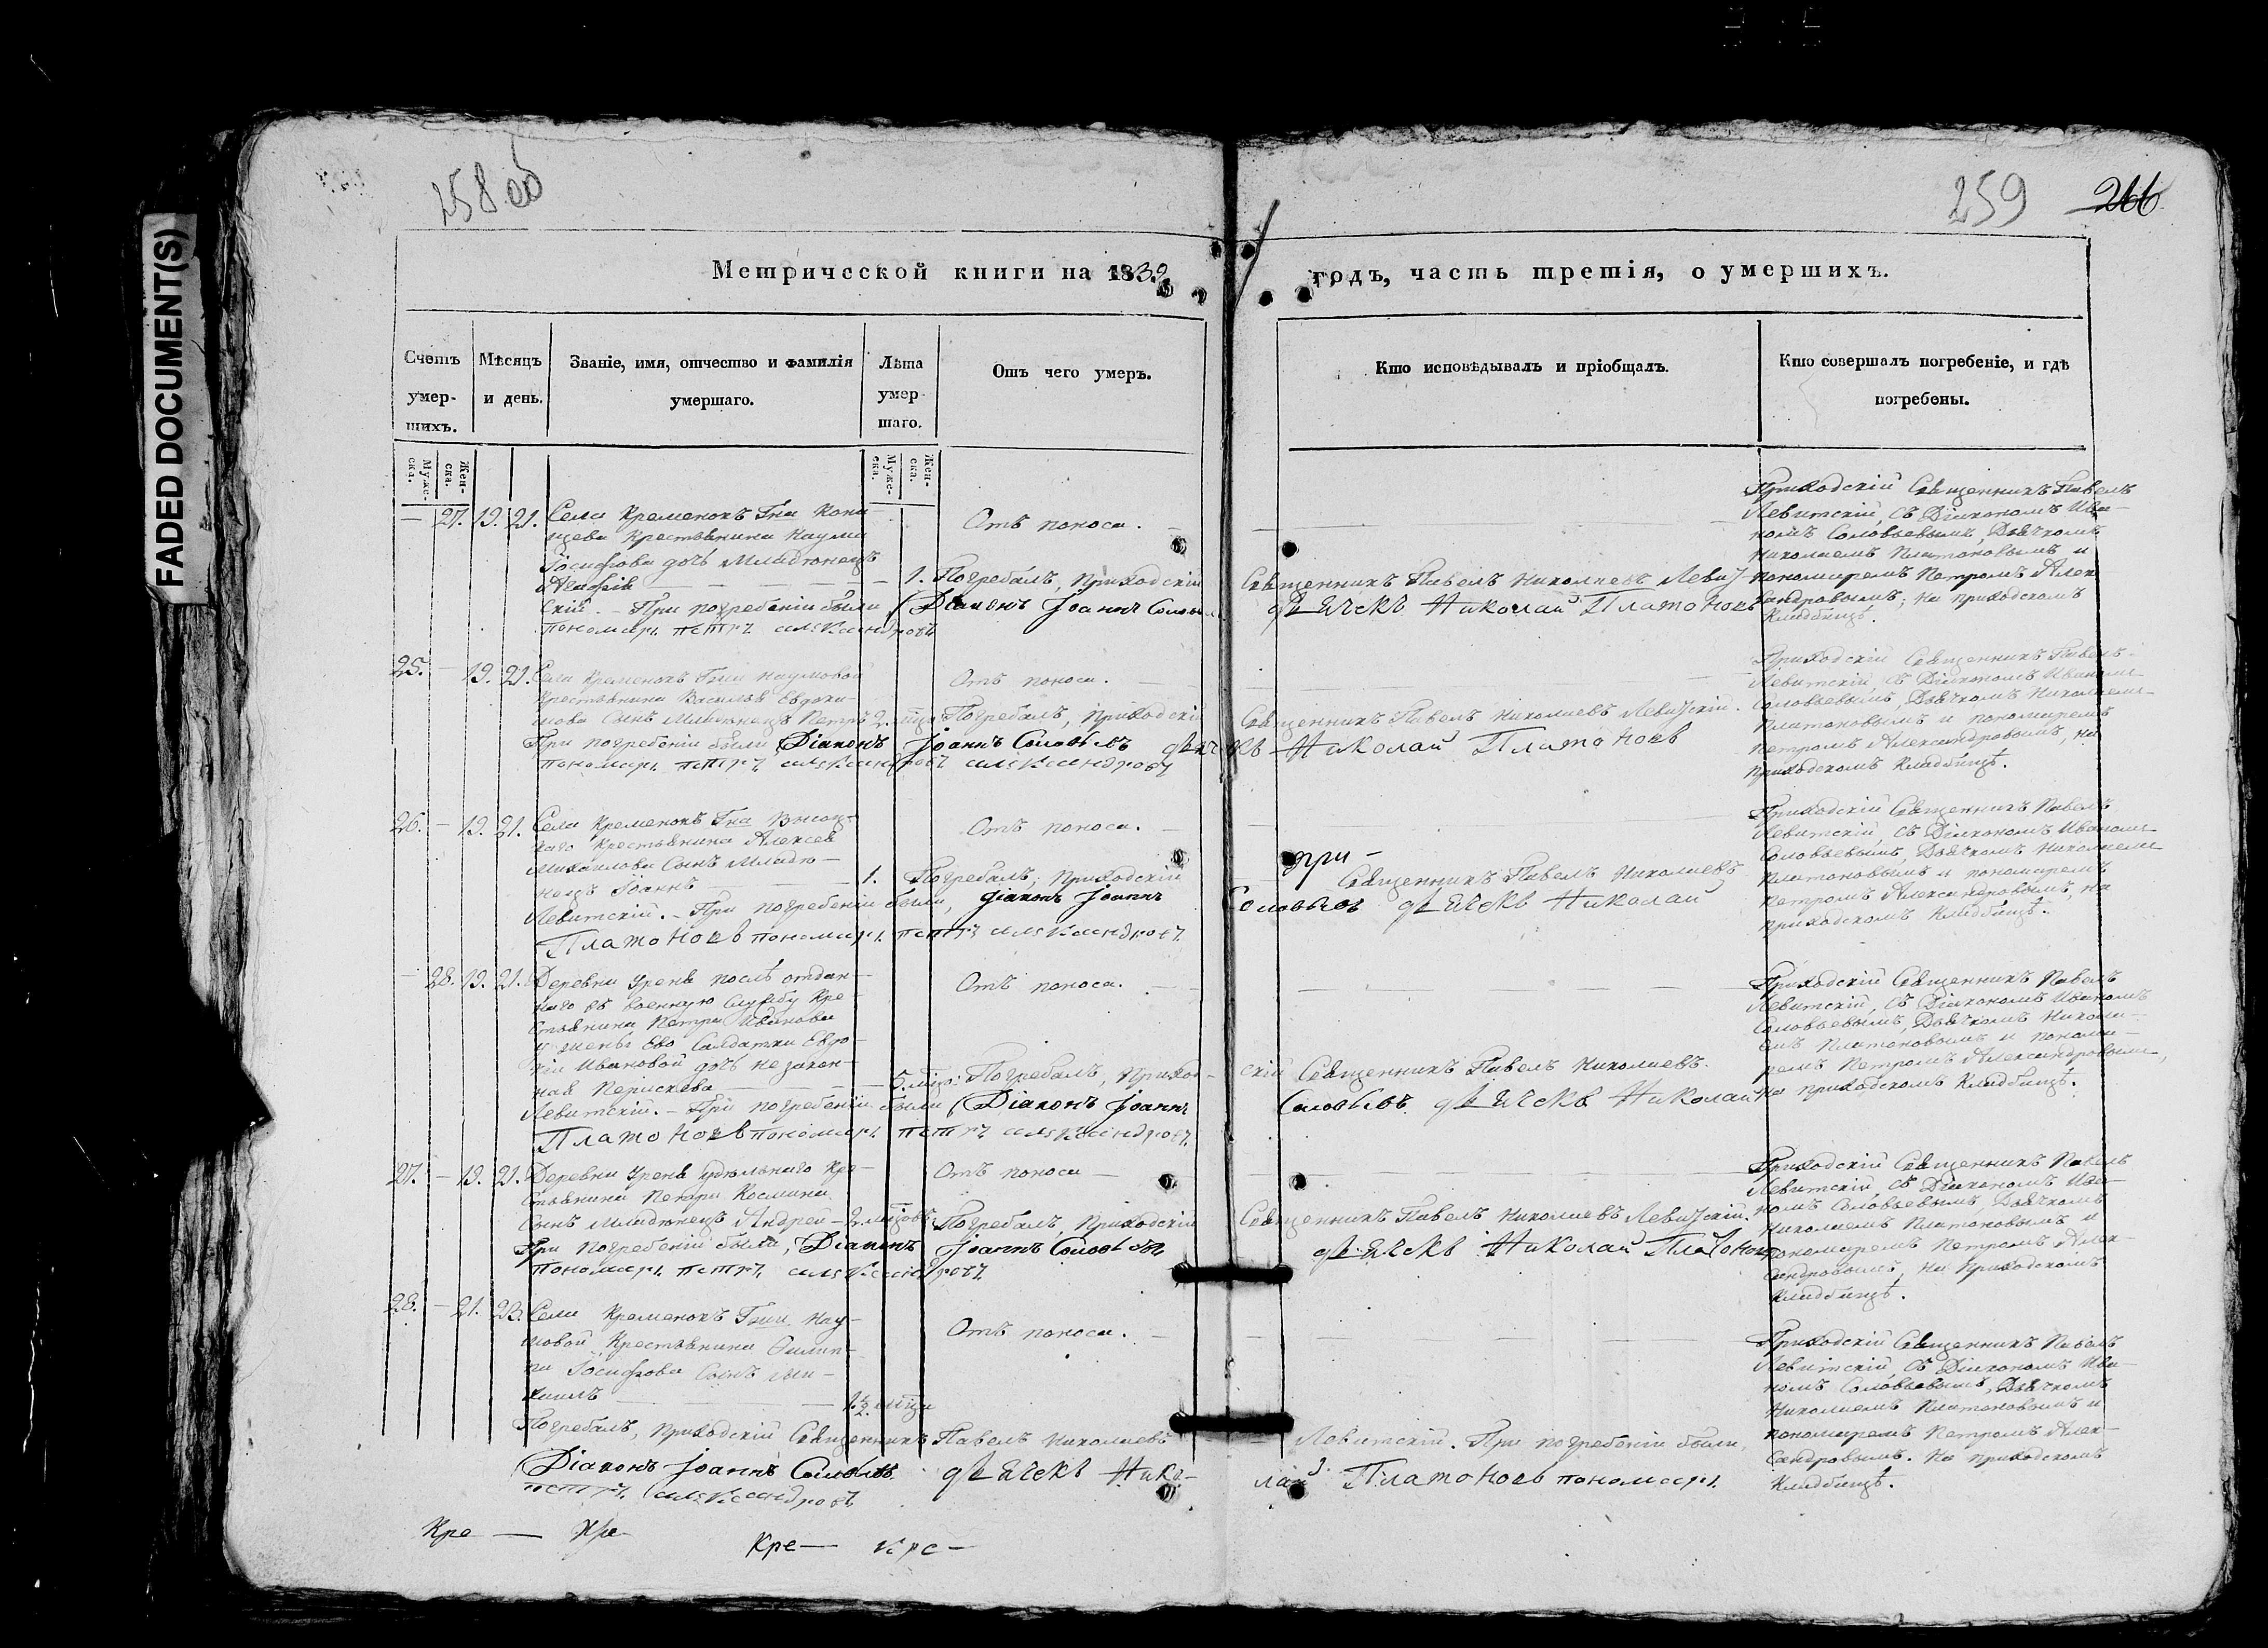 FADED DOCUMENT(S)
258 об
259 266
Метрической книги на 1839
годъ, часть третія, о умершихъ.
Счетъ умер-шихъ.
Мѣсяцъ и день.
Званіе, имя, отчество и фамилія умершаго.
Лѣта умер-шаго.
Отъ чего умеръ.
Кто исповѣдывалъ и пріобщалъ.
Кто совершалъ погребеніе, и гдѣ погребены.
Муже-ска.
Жен-ска.
Муже-ска.
Жен-ска.
— 27. 19. 21. Села Кременокъ Гна
Крестьянина Наума
Іосифова дочь младенецъ
Агафія — 1.
Отъ поноса.
Погребалъ, Приходскій Священникъ Павелъ Николаевъ Левит-
скій. – При погребеніи были Діаконъ Іоаннъ Соловьевъ дьячекъ Николай Платоновъ
пономарь петръ александровъ
Приходскій Священникъ Павелъ
Левитскій, съ Діакономъ Ива-
номъ Соловьевымъ, Дьячкомъ
Николаемъ Платоновымъ и
пономаремъ Петромъ Алек-
сандровымъ, на приходскомъ
Кладбищѣ.
25. — 19. 21. Села Кременокъ Гжи Наумовой
Крестьянина Василья Евдоки-
мова Сынъ младенецъ Петръ 2. мца
Отъ поноса.
Погребалъ, Приходскій Священникъ Павелъ Николаевъ Левитскій.
При погребеніи были Діаконъ Іоаннъ Соловьевъ дьячекъ Николай Платоновъ
пономарь петръ александровъ александровъ
Приходскій Священникъ Павелъ
Левитскій съ Діакономъ Иваномъ
Соловьевымъ, Дьячкомъ Николаемъ
Платоновымъ и пономаремъ
Петромъ Александровымъ, на
приходскомъ Кладбищѣ.
26. — 19. 21. Села Кременокъ Гна
Крестьянина Алексея
Михайлова Сынъ младе-
нецъ Іоаннъ — 1.
Отъ поноса.
Погребалъ, Приходскій
при –
Священникъ Павелъ Николаевъ
Левитскій. – При погребеніи были, діаконъ Іоаннъ Соловьевъ дьячекъ Николай
Платоновъ пономарь петръ александровъ
Приходскій Священникъ Павелъ
Левитскій, съ Діакономъ Иваномъ
Соловьевымъ, Дьячкомъ Николаемъ
Платоновымъ и пономаремъ
Петромъ Александровымъ, на
приходскомъ Кладбищѣ.
— 28. 19. 21. Деревни Урень послѣ отдан-
наго въ военную службу Кре-
стьянина Петра Иванова
у жены Ево Салдатки Евдо-
кіи Ивановой дочь незакон-
ная — 5. мцо:
Отъ поноса.
Погребалъ, Приход-скій Священникъ Павелъ Николаевъ.
Левитскій. – При погребеніи были Діаконъ Іоаннъ Соловьевъ дьячекъ Николай
Платоновъ пономарь петръ александровъ
Приходскій Священникъ Павелъ
Левитскій, съ Діакономъ Иваномъ
Соловьевымъ, Дьячкомъ Никола-
емъ Платоновымъ и понома-
ремъ Петромъ Александровымъ,
на приходскомъ Кладбищѣ.
27. — 19. 21. Деревни Урень удѣльнаго Кре-
стьянина Петра Космина
Сынъ младенецъ Андрей – 2. мцовъ
Отъ поноса —
Погребалъ, Приходскій Священникъ Павелъ Николаевъ Левитскій.
При погребеніи были, Діаконъ Іоаннъ Соловьевъ дьячекъ Николай Платоновъ
пономарь петръ александровъ
Приходскій Священникъ Павелъ
Левитскій съ Діакономъ Ива-
номъ Соловьевымъ, Дьячкомъ
Николаемъ Платоновымъ и
пономаремъ Петромъ Алек-
сандровымъ, на Приходскомъ
Кладбищѣ.
28. — 21. 23. Села Кременокъ Гжи Нау-
мовой Крестьянина Филип-
па Іосифова Сынъ Ми-
хаилъ — 1½ мца
Отъ поноса.
Погребалъ, Приходскій Священникъ Павелъ Николаевъ Левитскій. При погребеніи были,
Діаконъ Іоаннъ Соловьевъ дьячекъ Нико-лай Платоновъ пономарь
петръ александровъ
Приходскій Священникъ Павелъ
Левитскій съ Діакономъ Ива-
номъ Соловьевымъ, Дьячкомъ
Николаемъ Платоновымъ и
пономаремъ Петромъ Алек-
сандровымъ. На приходскомъ
Кладбищѣ.
Кре — Кре
Кре — Кре –